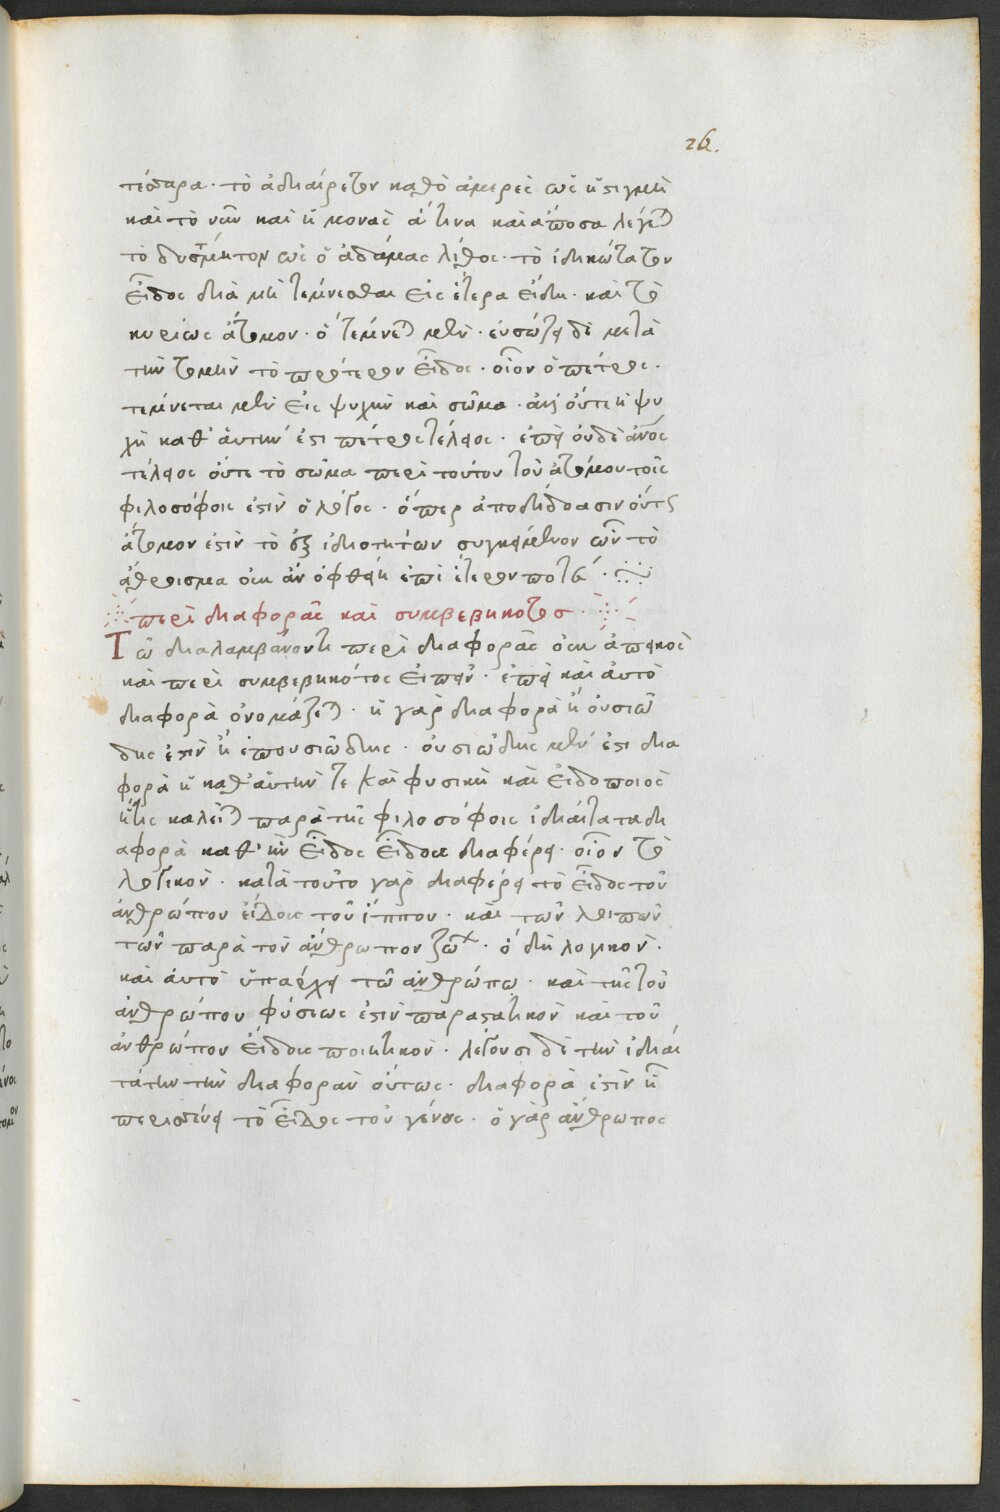 26.
τέσσαρα· τὸ ἀδιαίρετον καθὸ ἀμερὲς ὡς ἡ στιγμὴ
καὶ τὸ νῦν καὶ ἡ μονὰς ἅτινα καὶ ἄποσα λέγεται
τὸ δύστμητον ὡς ὁ ἀδάμας λίθος· τὸ ἰδικώτατον
εἶδος διὰ μὴ τέμνεσθαι εἰς ἕτερα εἴδη· καὶ τὸ
κυρίως ἄτομον· ὃ τέμνεται μὲν· οὐ σώζει δὲ μετὰ
τὴν τομὴν τὸ πρότερον εἶδος· οἷον ὁ πέτρος·
τέμνεται μὲν εἰς ψυχὴν καὶ σῶμα· ἀλλ' οὔτε ἡ ψυ
χὴ καθ' αὑτήν ἐστι πέτρος τέλειος· ἐπεὶ οὐδὲ ἄνθρωπος
τέλειος οὔτε τὸ σῶμα περὶ τούτου τοῦ ἀτόμου τοῖς
φιλοσόφοις ἐστὶν ὁ λόγος· ὅπερ ἀποδιδόασιν οὕτως
ἄτομόν ἐστιν τὸ ἐξ ἰδιοτήτων συγκείμενον ὧν τὸ
ἄθροισμα οὐκ ἂν ὀφθείη ἐπὶ ἑτέρου ποτέ·
περὶ διαφορᾶς καὶ συμβεβηκότος·
Τῷ διαλαμβάνοντι περὶ διαφορᾶς οὐκ ἀπεικὸς
καὶ περὶ συμβεβηκότος εἰπεῖν· ἐπεὶ καὶ αὐτὸ
διαφορὰ ὀνομάζεται· ἡ γὰρ διαφορὰ ἢ οὐσιώ
δης ἐστὶν ἢ ἐπουσιώδης· οὐσιώδης μέν ἐστι δια
φορὰ ἡ καθ' αὑτήν τε καὶ φυσικὴ καὶ εἰδοποιὸς
ἥτις καλεῖται παρὰ τοῖς φιλοσόφοις ἰδιαίτατα δι
αφορὰ καθ' ἣν εἶδος εἴδους διαφέρει· οἷον τὸ
λογικόν· κατὰ τοῦτο γὰρ διαφέρει τὸ εἶδος τοῦ
ἀνθρώπου εἴδους τοῦ ἵππου· καὶ τῶν λοιπῶν
τῶν παρὰ τὸν ἄνθρωπον ζώων· ὃ δὴ λογικὸν·
καὶ αὐτὸ ὑπάρχει τῷ ἀνθρώπῳ· καὶ τῆς τοῦ
ἀνθρώπου φύσεως ἐστὶν παραστατικὸν καὶ τοῦ
ἀνθρώπου εἴδους ποιητικόν· λέγουσι δὲ τὴν ἰδιαι
τάτην τὴν διαφορὰν οὕτως· διαφορά ἐστὶν ᾗ
περισσεύει τὸ εἶδος τοῦ γένους· ὁ γὰρ ἄνθρωπος